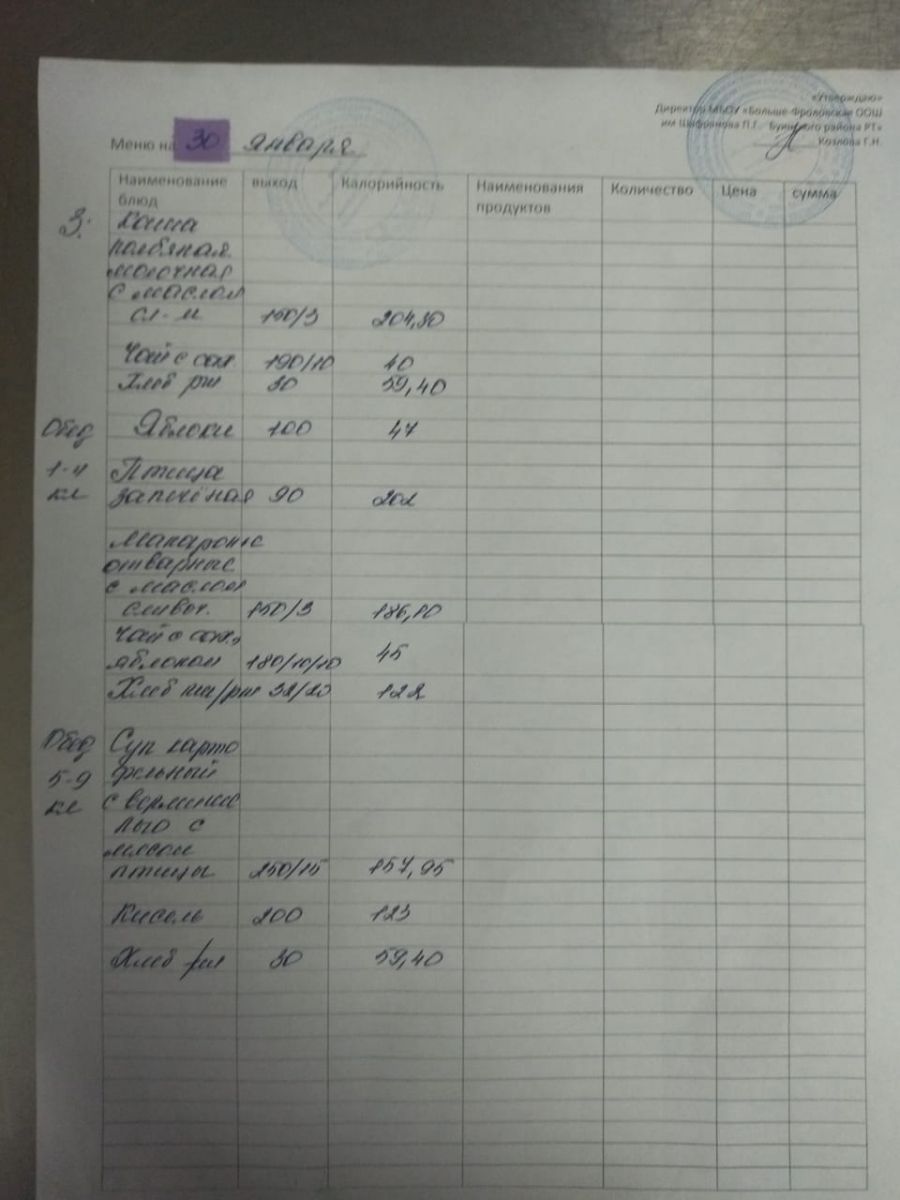 «Утверждаю»
Директор МБОУ «Больше-Фроловская ООШ
им Шафранова П.Г. Буинского района РТ»
Козлова Г.Н.
Меню на 30 января
Наименование блюд выход Калорийность Наименования продуктов Количество Цена сумма
З. Каша
полбяная
молочная
с маслом
сл-м 150/3 204,30
Чай с сах 190/10 40
Хлеб рж 30 59,40
Обед Яблоки 100 47
1-4 Птица
кл запечёная 90 202
Макароны
отварные
с маслом
сливоч. 150/3 186,10
Чай с сах,
яблоком 180/10/10 45
Хлеб пш/рж 32/20 122
Обед Суп карто
5-9 фельный
кл с вермишел
лью с
мясом
птицы 250/15 157,95
Кисель 200 123
Хлеб рж 30 59,40